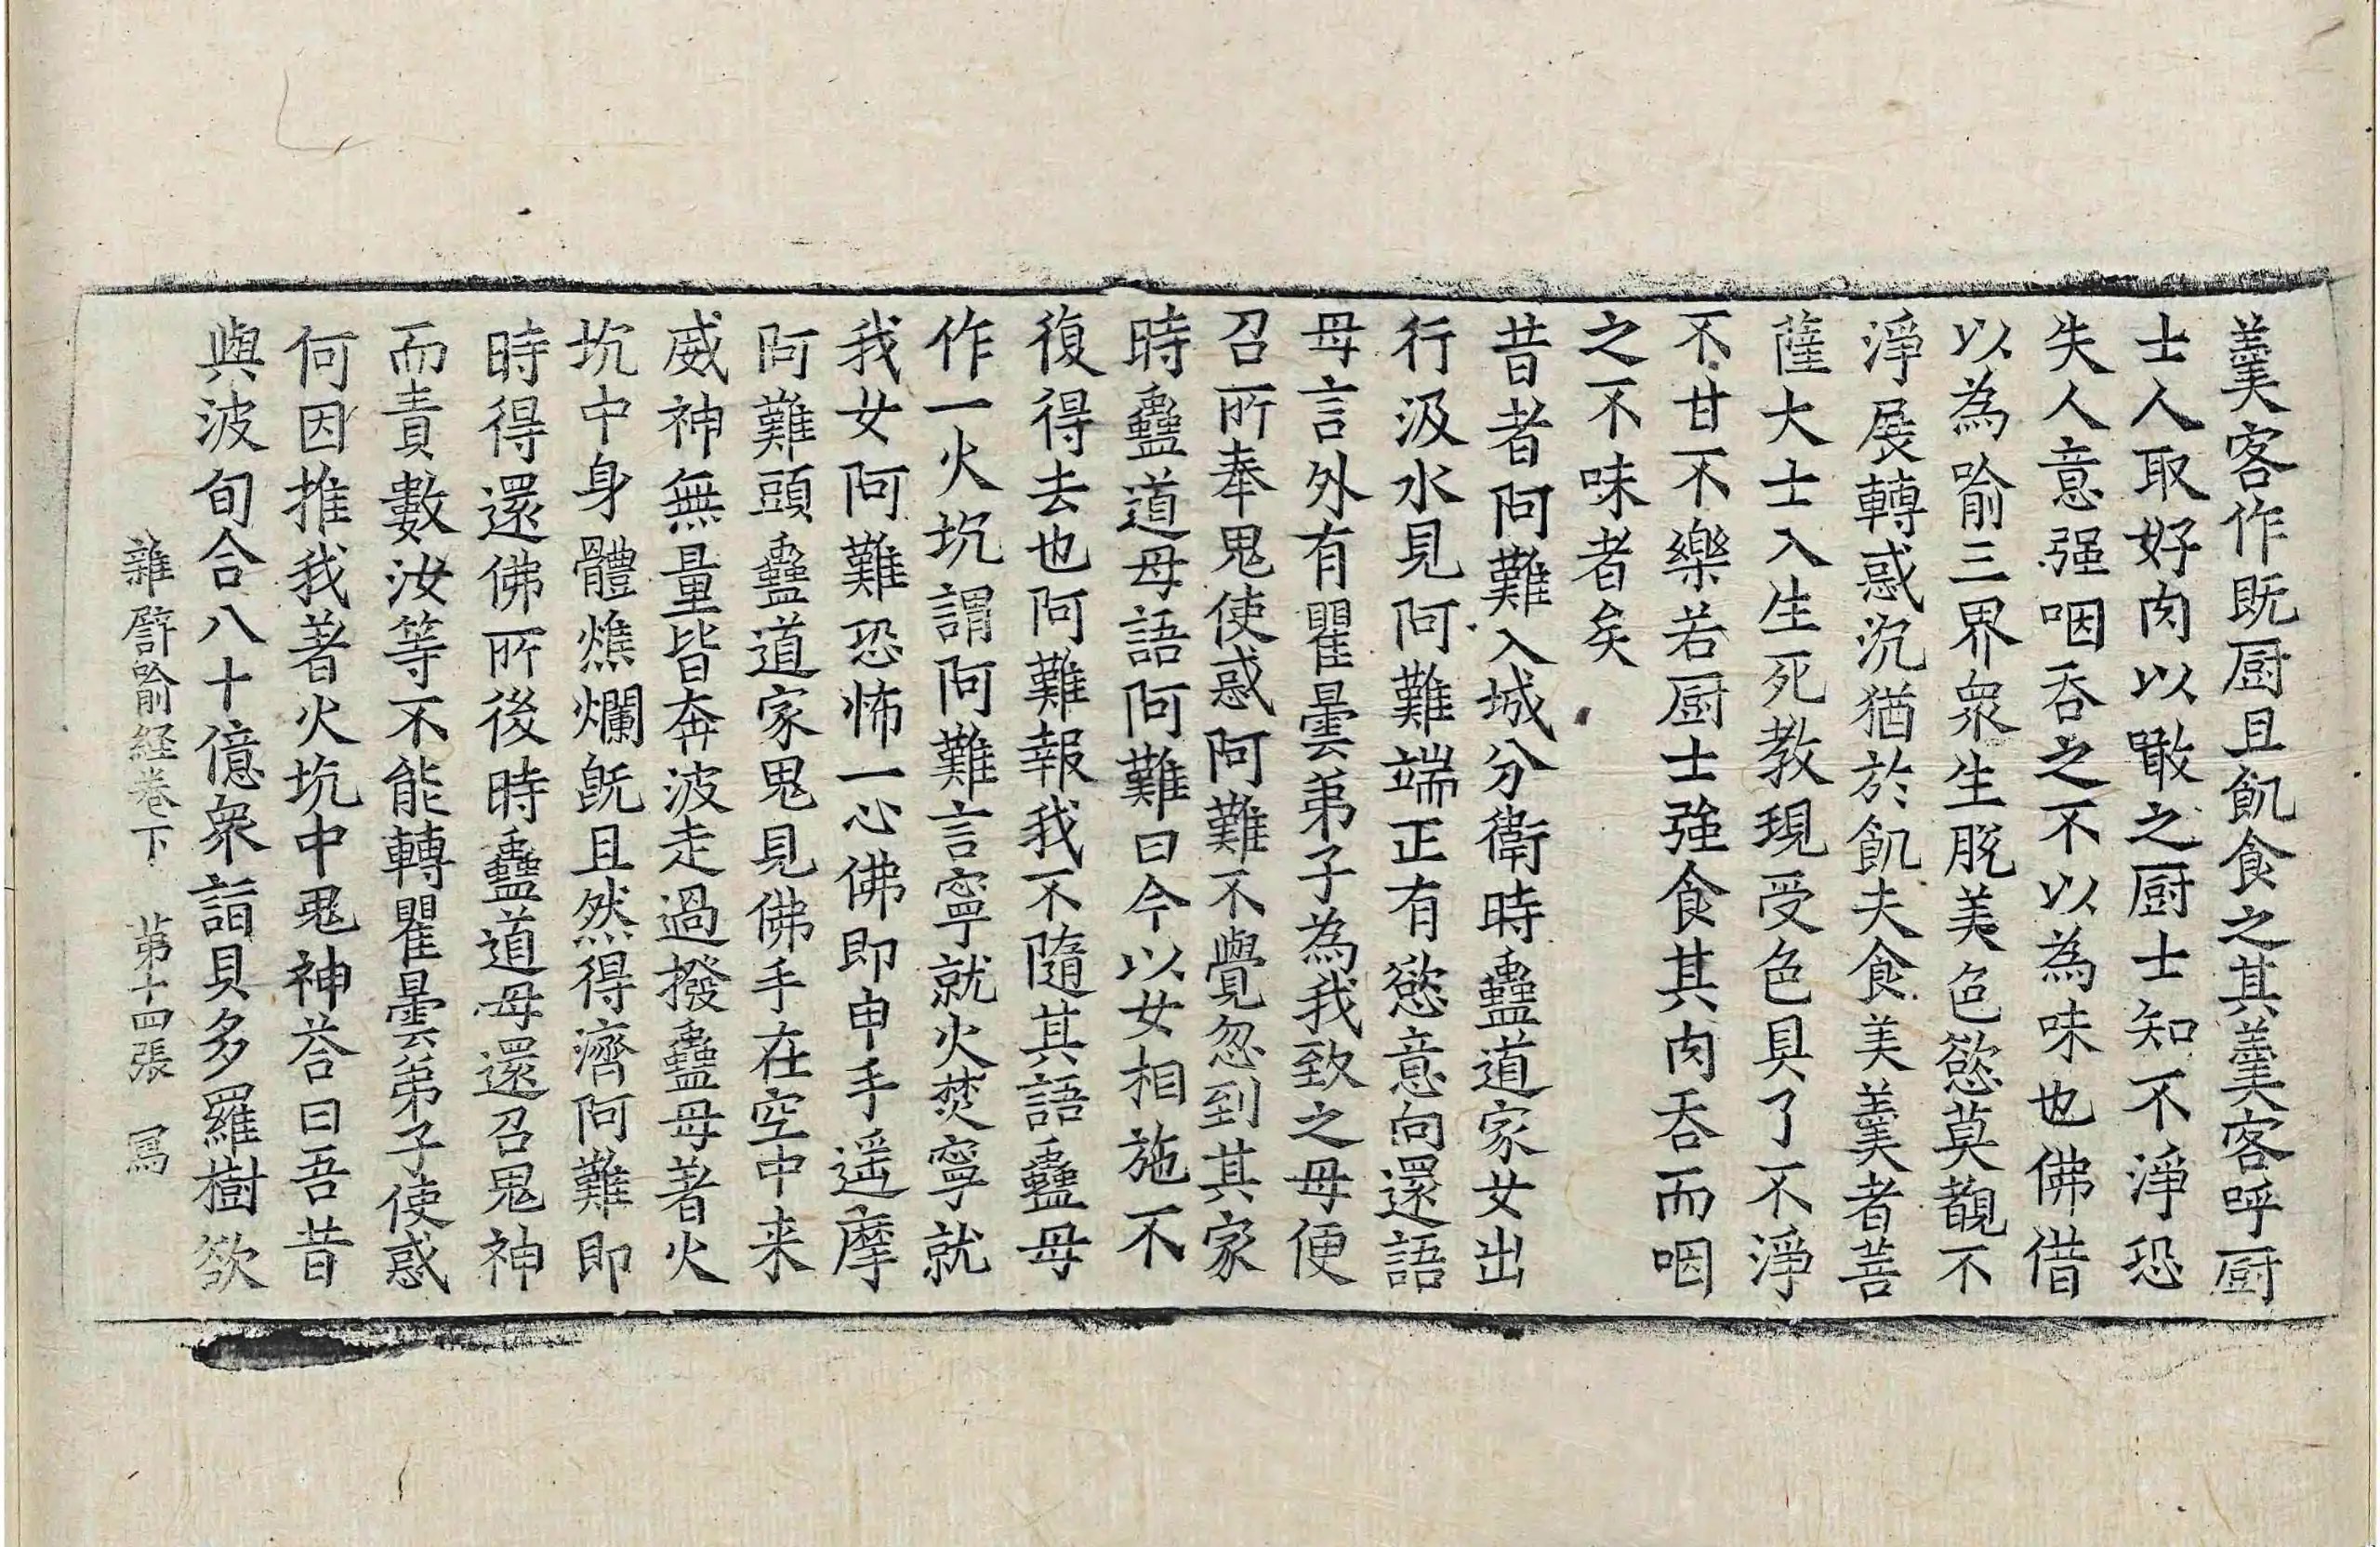 羹客作既厨且飢食之其羹客呼厨
士人取好肉以噉之厨士知不淨恐
失人意强咽吞之不以為味也佛借
以為喻三界衆生脫美色慾莫覩不
淨展轉惑沉猶於飢夫食美羹者菩
薩大士入生死教現受色具了不淨
不甘不樂若厨士強食其肉吞而咽
之不味者矣
昔者阿難入城分衛時蠱道家女出
行汲水見阿難端正有慾意向還語
母言外有瞿曇弟子為我致之母便
召所奉鬼使惑阿難不覺忽到其家
時蠱道母語阿難曰今以女相施不
復得去也阿難報我不隨其語蠱母
作一火坑謂阿難言寧就火焚寧就
我女阿難恐怖一心佛即申手遥摩
阿難頭蠱道家鬼見佛手在空中来
威神無量皆奔波走過撥蠱母著火
坑中身體燋爛旣且然得濟阿難即
時得還佛所後時蠱道母還召鬼神
而責數汝等不能轉瞿曇弟子使惑
何因推我著火坑中鬼神荅曰吾昔
與波旬合八十億衆詣貝多羅樹欲
雜譬喻経卷下　第十四張　寫